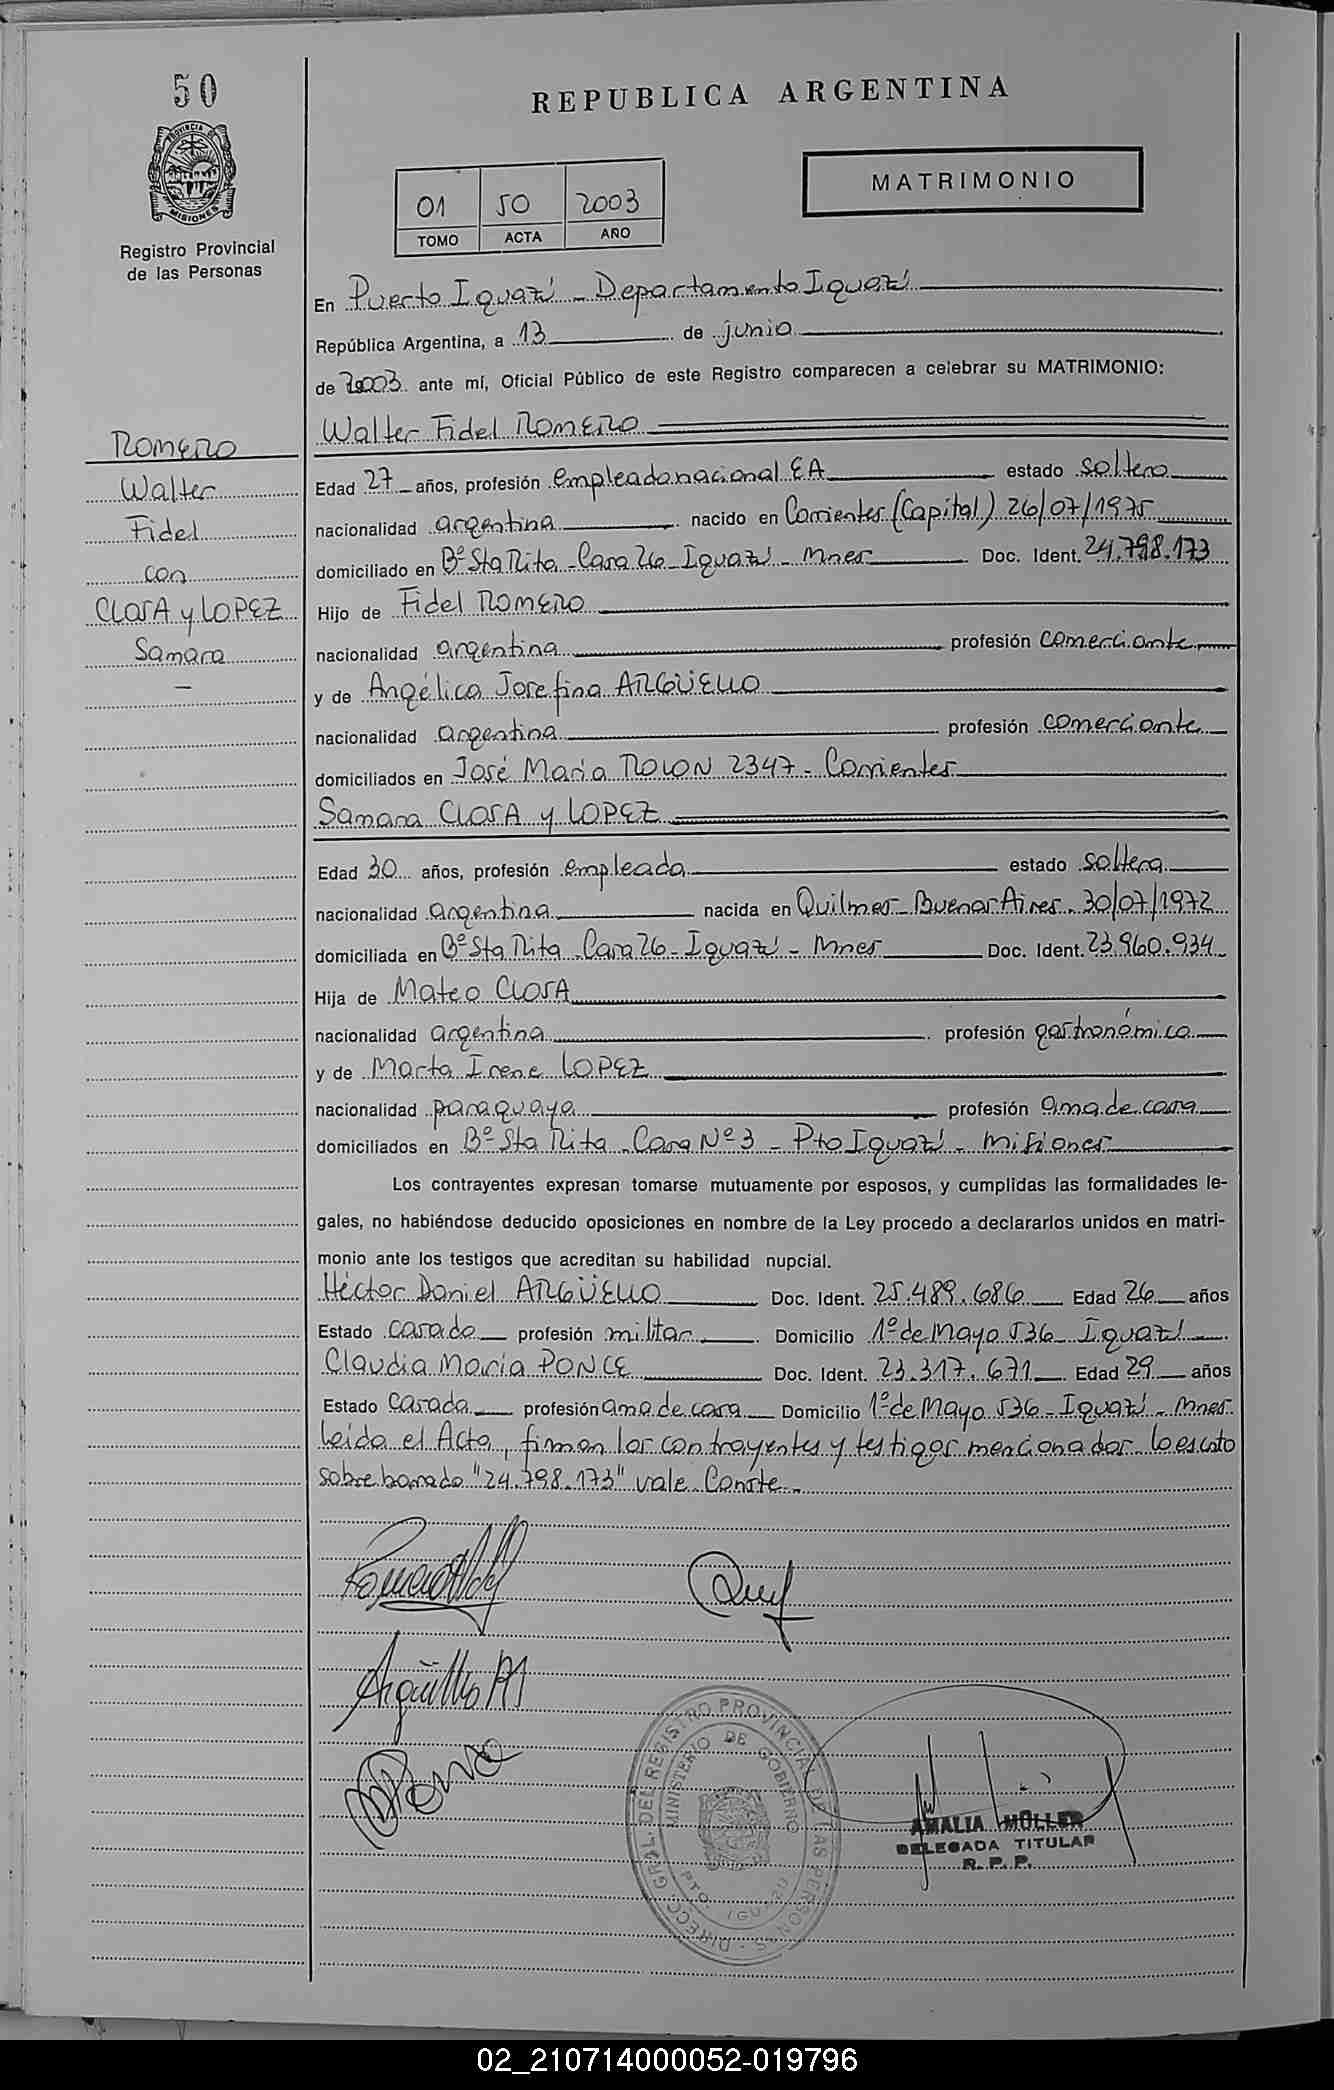 50
PROVINCIA DE
MISIONES
Registro Provincial
de las Personas
REPUBLICA ARGENTINA
01 50 2003
TOMO ACTA AÑO
MATRIMONIO
En Puerto Iguazú - Departamento Iguazú
República Argentina, a 13 de junio
de 2003 ante mí, Oficial Público de este Registro comparecen a celebrar su MATRIMONIO:
ROMERO
Walter
Fidel
con
CLOSA y LOPEZ
Samara
Walter Fidel ROMERO
Edad 27 años, profesión empleado nacional EA estado soltero
nacionalidad argentina nacido en Corrientes (Capital) 26/07/1975
domiciliado en Bº Sta Rita - Casa 26 - Iguazú - Mnes Doc. Ident. 24.798.173
Hijo de Fidel ROMERO
nacionalidad argentina profesión comerciante
y de Angélica Josefina ARGÜELLO
nacionalidad argentina profesión comerciante
domiciliados en José María ROLON 2347 - Corrientes
Samara CLOSA y LOPEZ
Edad 30 años, profesión empleada estado soltera
nacionalidad argentina nacida en Quilmes - Buenos Aires. 30/07/1972
domiciliada en Bº Sta Rita - Casa 26 - Iguazú - Mnes Doc. Ident. 23.960.934
Hija de Mateo CLOSA
nacionalidad argentina profesión gastronómico
y de Marta Irene LOPEZ
nacionalidad paraguaya profesión ama de casa
domiciliados en Bº Sta Rita - Casa Nº 3 - Pto Iguazú - Misiones
Los contrayentes expresan tomarse mutuamente por esposos, y cumplidas las formalidades le-
gales, no habiéndose deducido oposiciones en nombre de la Ley procedo a declararlos unidos en matri-
monio ante los testigos que acreditan su habilidad nupcial.
Héctor Daniel ARGÜELLO Doc. Ident. 25.489.686 Edad 26 años
Estado casado profesión militar Domicilio 1º de Mayo 536 Iguazú
Claudia María PONCE Doc. Ident. 23.317.671 Edad 29 años
Estado casada profesión ama de casa Domicilio 1º de Mayo 536 - Iguazú - Mnes.
Leída el Acta, firman los contrayentes y testigos mencionados. Lo escrito
sobreborrado "24.798.173" vale. Conste.-
DIRECC. GRAL. DEL REGISTRO PROVINCIAL DE LAS PERSONAS
MINISTERIO DE GOBIERNO
PTO. IGUAZU
AMALIA MÜLLER
DELEGADA TITULAR
R. P. P.
02_210714000052-019796